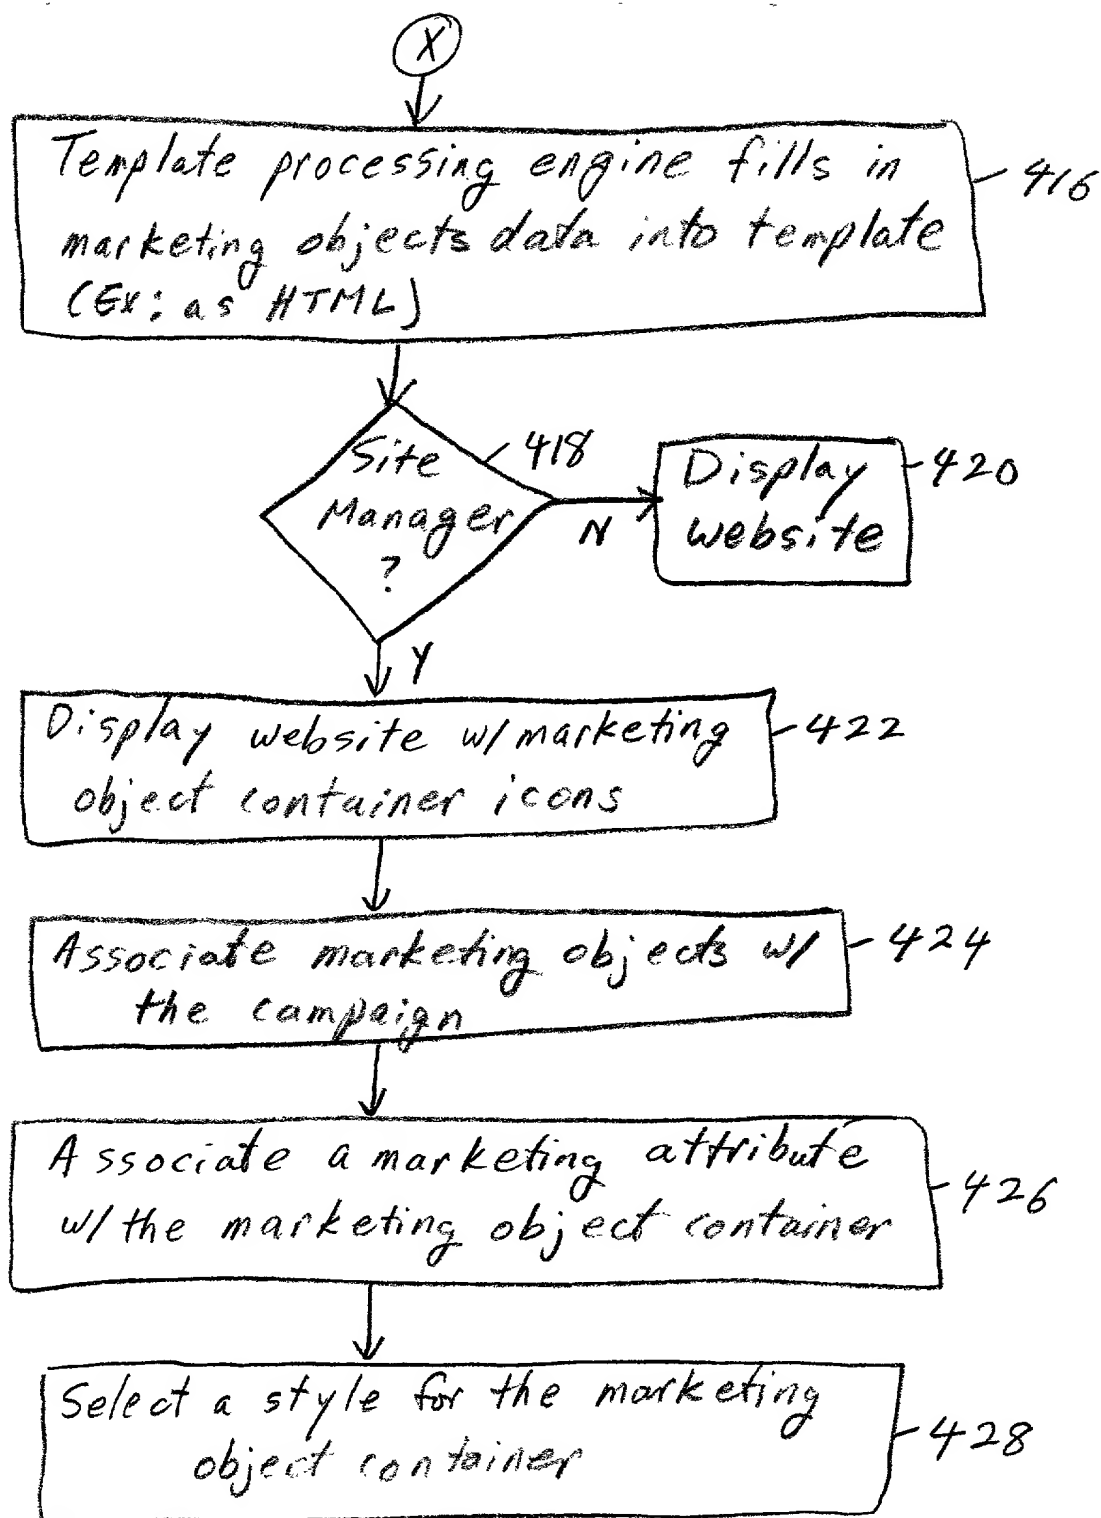 X
Template processing engine fills in
marketing objects data into template
(Ex: as HTML)
416
Site
Manager
?
418
N
Display
website
420
Y
Display website w/ marketing
object container icons
422
Associate marketing objects w/
the campaign
424
Associate a marketing attribute
w/ the marketing object container
426
Select a style for the marketing
object container
428